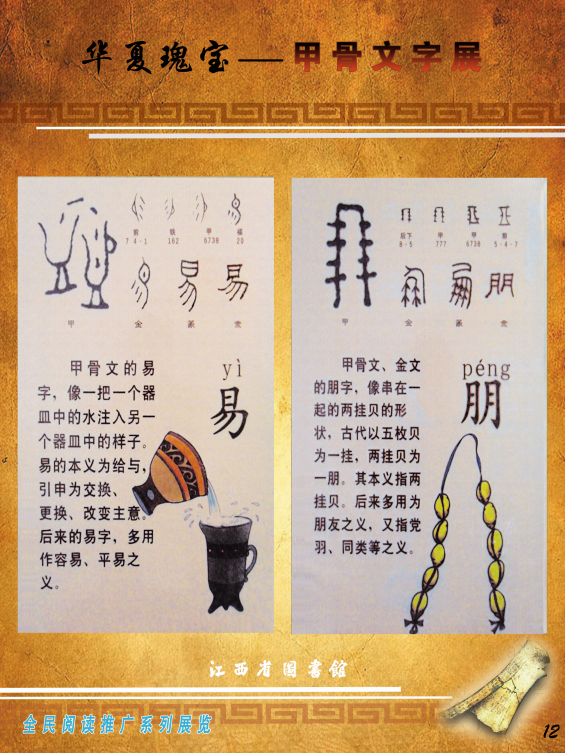 华夏瑰宝——甲骨文字展
前 铁 甲 福
7 4·1 162 6738 20
甲 金 篆 隶
yì
易
甲骨文的易
字，像一把一个器
皿中的水注入另一
个器皿中的样子。
易的本义为给与，
引申为交换、
更换、改变主意。
后来的易字，多用
作容易、平易之
义。
后下 甲 甲 前
8·5 777 6738 5·4·7
甲 金 篆 隶
péng
朋
甲骨文、金文
的朋字，像串在一
起的两挂贝的形
状，古代以五枚贝
为一挂，两挂贝为
一朋。其本义指两
挂贝。后来多用为
朋友之义，又指党
羽、同类等之义。
江西省图書館
全民阅读推广系列展览
12